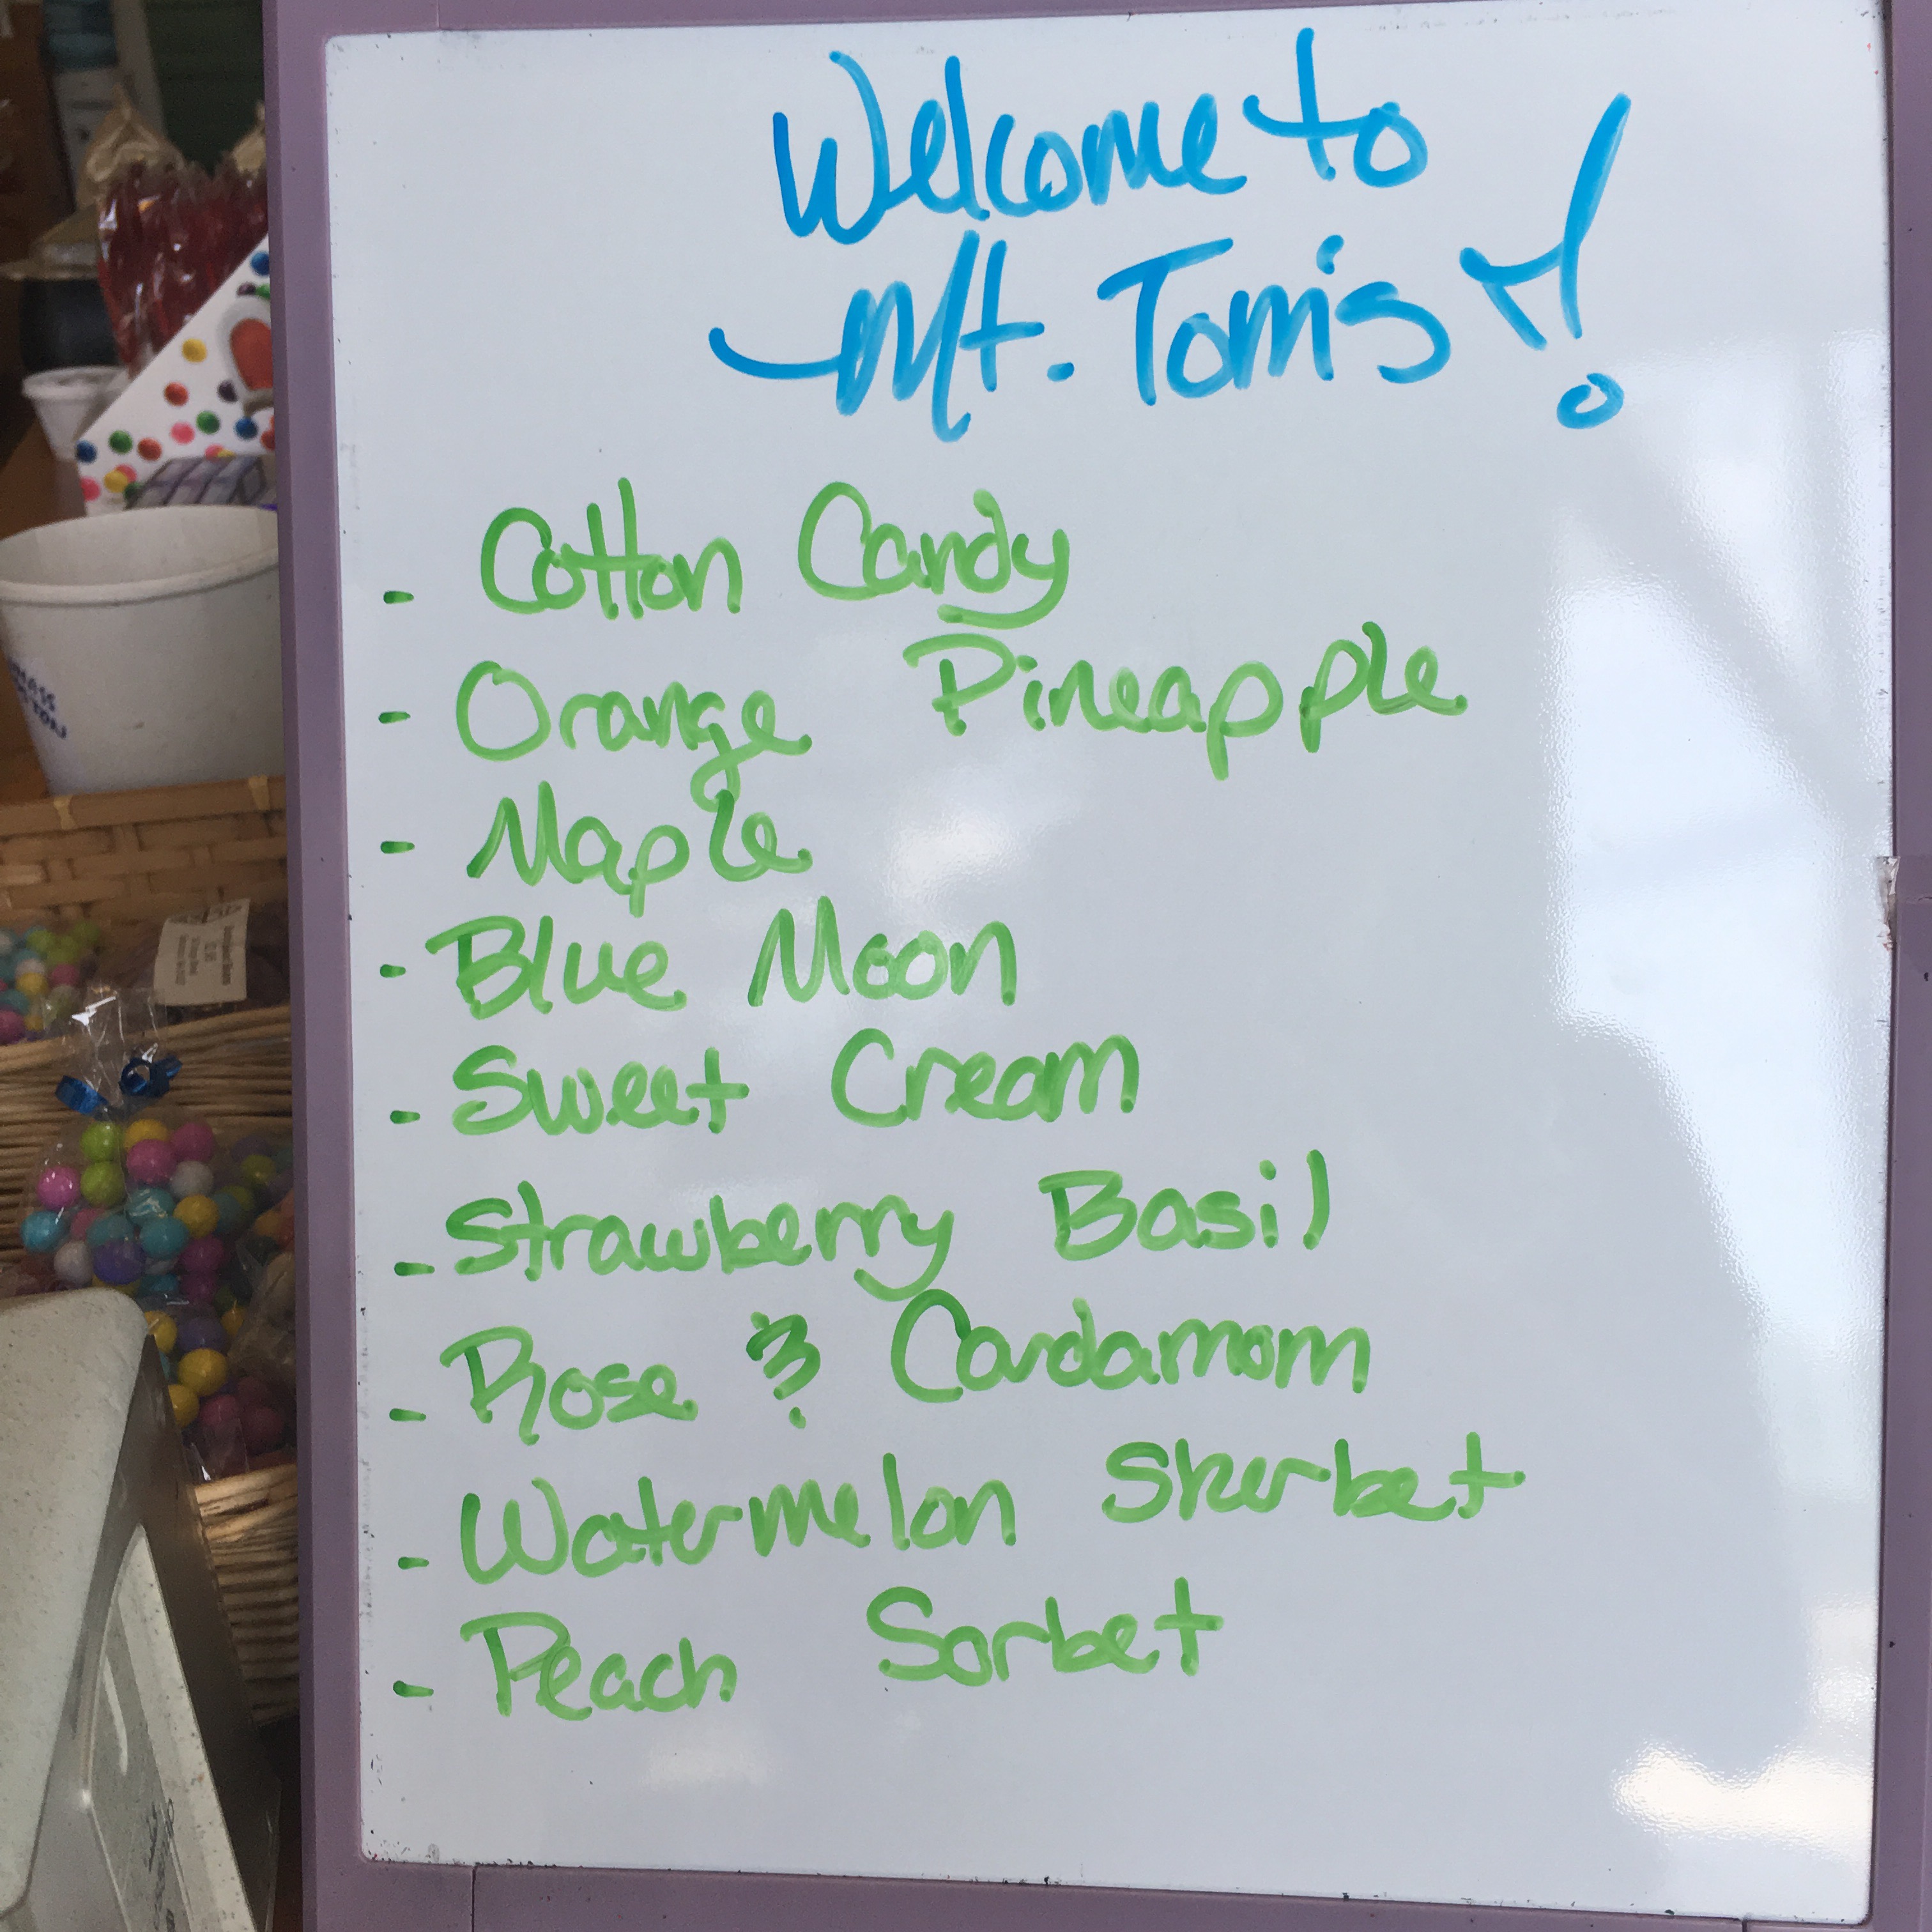 Welcome to
Mt. Tom's!
- Cotton Candy
- Orange Pineapple
- Maple
- Blue Moon
- Sweet Cream
- Strawberry Basil
- Rose & Cardamom
- Watermelon Sherbet
- Peach Sorbet